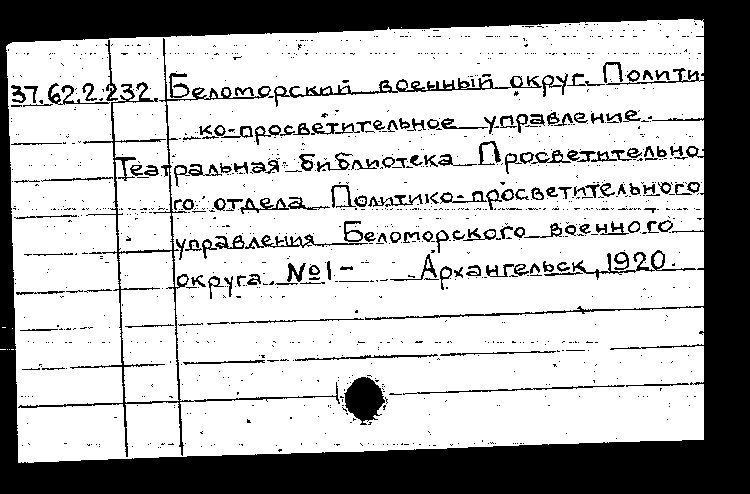 37.62.2.232. Беломорский военный округ. Полити-
ко-просветительное управление.
Театральная библиотека Просветительно-
го отдела Политико-просветительного
управления Беломорского военного
округа. №1- Архангельск, 1920.